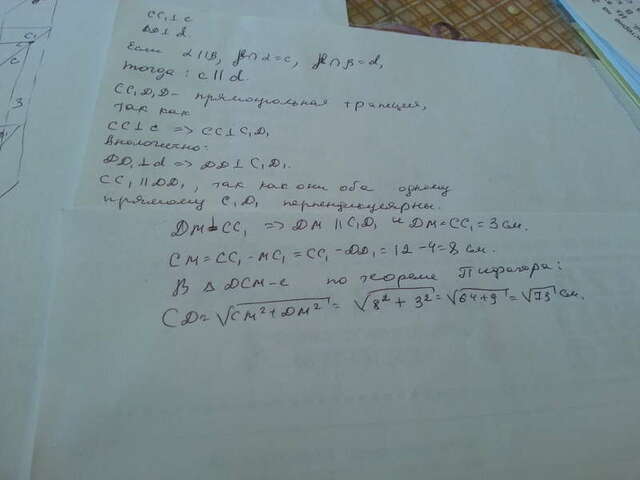 CC₁⊥c
DD₁⊥d
Если α||β, γ∩α=c, γ∩β=d,
тогда: c||d.
CC₁D₁D- прямоугольная трапеция,
так как
CC₁⊥c => CC₁⊥C₁D₁
Аналогично:
DD₁⊥d => DD₁⊥C₁D₁.
CC₁||DD₁, так как они оба одному
прямому C₁D₁ перпендикулярны.
DM⊥CC₁ => DM||C₁D₁ и DM=CC₁=3см.
CM=CC₁-MC₁=CC₁-DD₁=12-4=8 см.
В Δ DCM-е по теореме Пифагора:
CD=√CM²+DM²=√8²+3²=√64+9=√73 см.
C₁
C
3